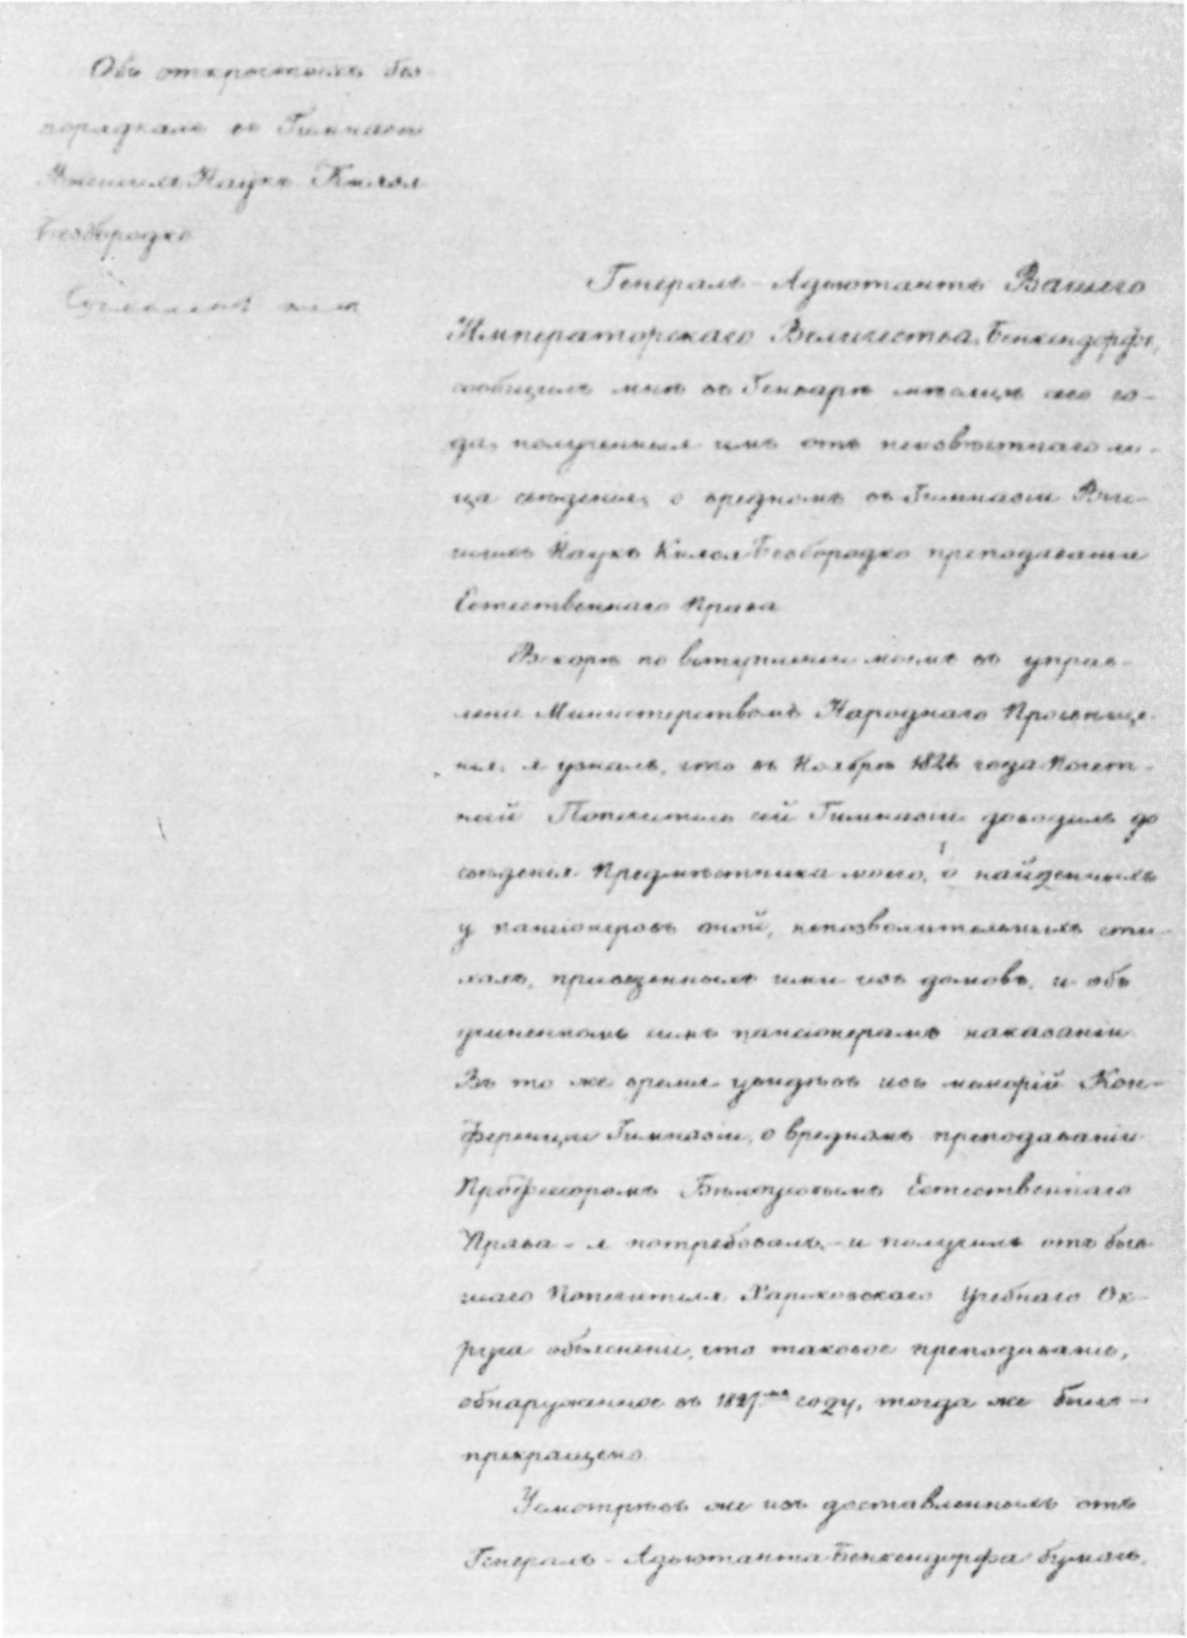 Объ открытыхъ без-
порядкахъ въ Гимназіи
Высшихъ Наукъ Князя
Безбородко
Генералъ-Адъютантъ Вашего
Императорскаго Величества, Бенкендорфъ,
сообщилъ мнѣ въ Генварѣ мѣсяцѣ сего го-
да, полученныя имъ отъ неизвѣстнаго ли-
ца свѣденія, о вредномъ въ Гимназіи Выс-
шихъ Наукъ Князя Безбородко преподаваніи
Естественнаго Права
Вскорѣ по вступленіи моемъ въ управ-
леніе Министерствомъ Народнаго Просвѣще-
нія, я узналъ, что въ Ноябрѣ 1826 года Почет-
ный Попечитель сей Гимназіи доводилъ до
свѣденія Предмѣстника моего, о найденныхъ
у пансіонеровъ оной, непозволительныхъ сти-
хахъ, привезенныхъ ими изъ домовъ, и объ
учиненномъ симъ пансіонерамъ наказаніи
Въ то же время увидѣвъ изъ меморій Кон-
ференціи Гимназіи, о вредномъ преподаваніи
Профессоромъ Бѣлоусовымъ Естественнаго
Права - я потребовалъ, - и получилъ отъ быв-
шаго Попечителя Харьковскаго Учебнаго Ок-
руга объясненіе, что таковое преподаваніе,
обнаруженное въ 1827мъ году, тогда же было -
прекращено
Усмотрѣвъ же изъ доставленныхъ отъ
Генералъ-Адъютанта Бенкендорфа бумагъ,